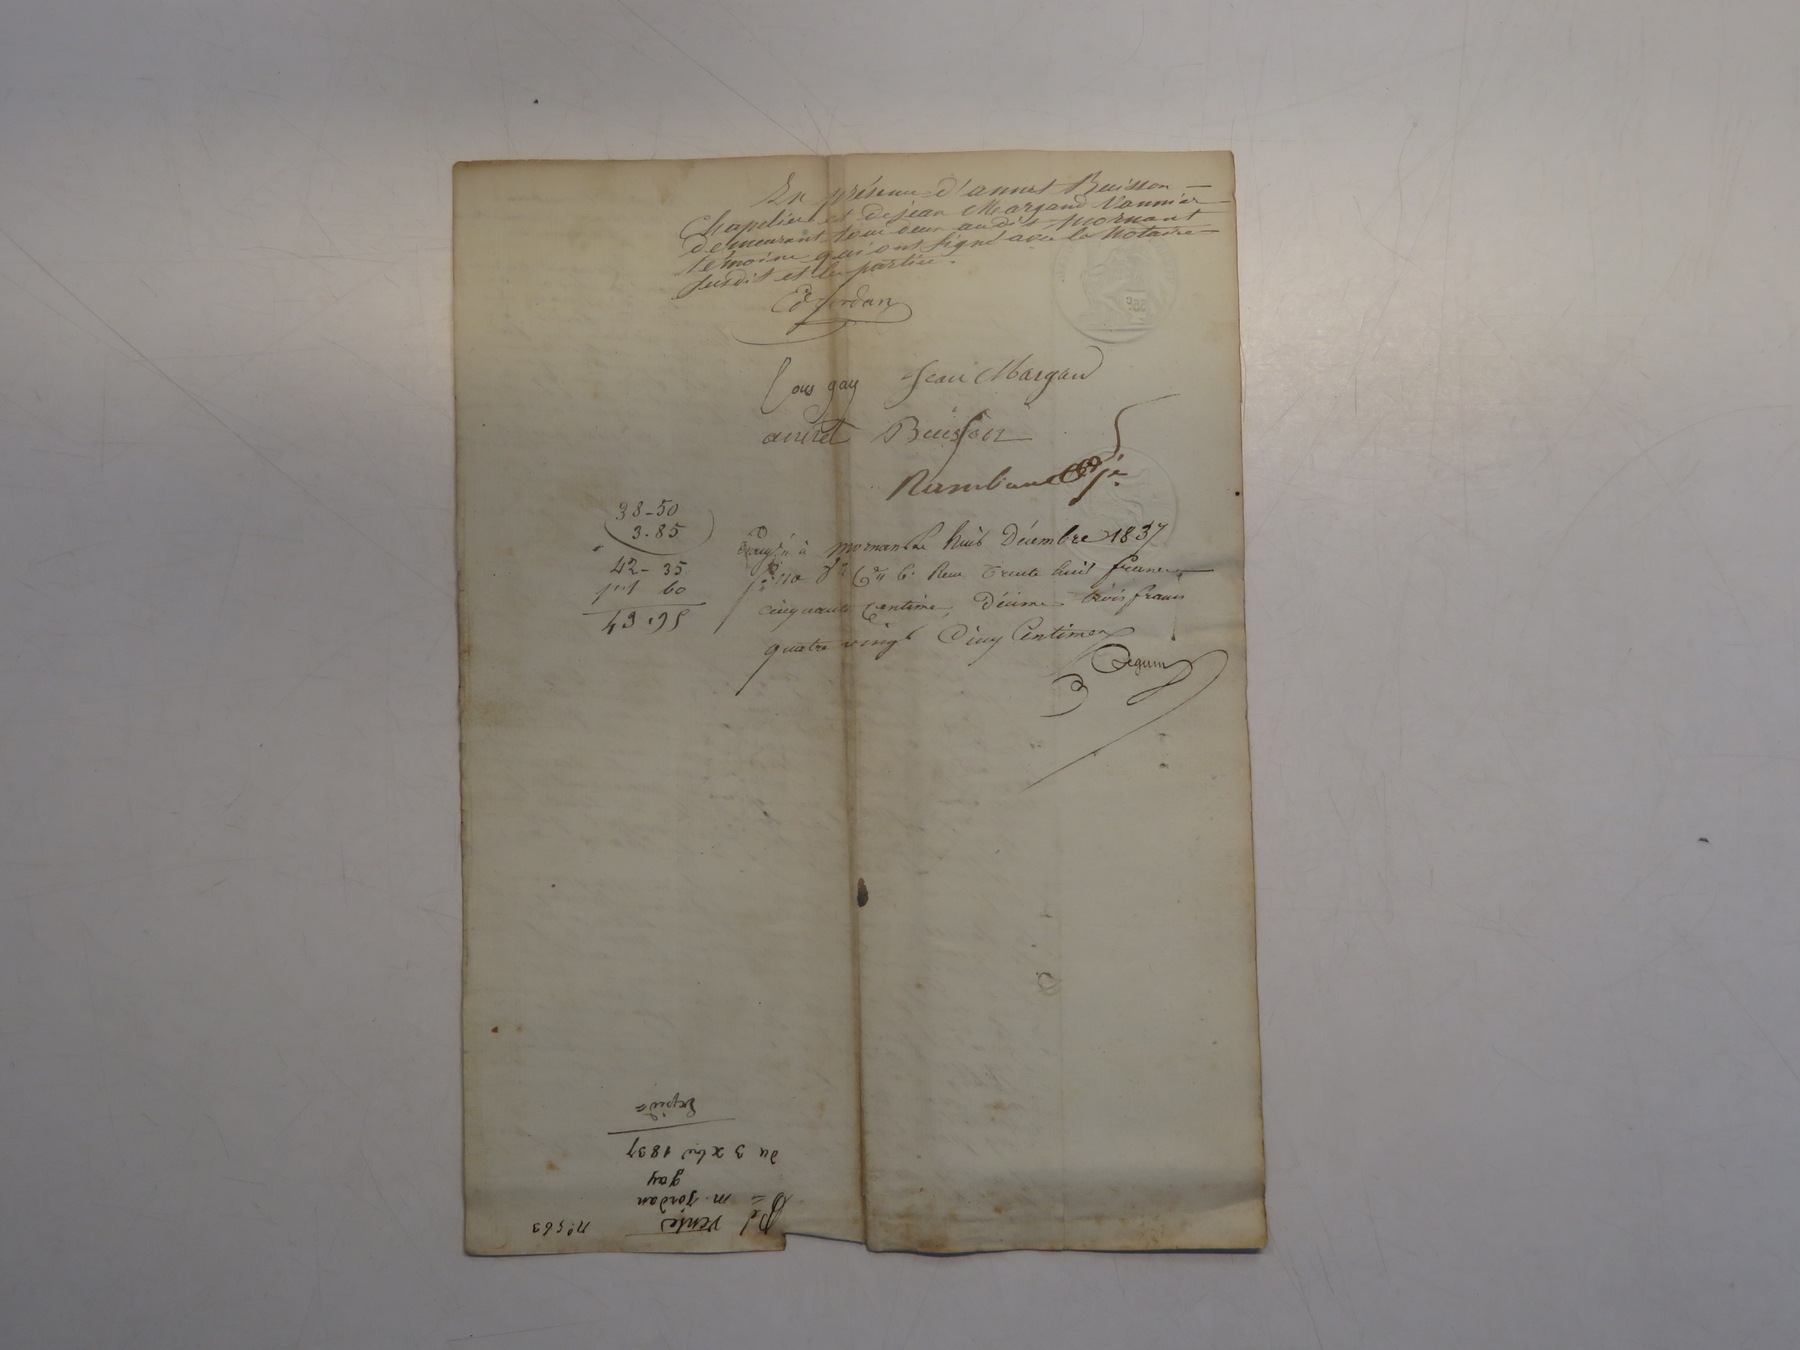 En présence d'annet Buisson
Chapelier et de jean Margand Vannier
demeurant tous deux audit Mornant
témoins qui ont signé avec le Notaire
susdit et les parties.
Jordan
Louis gay Jean Margand
annet Buisson
Rambaud
38-50
3.85
42-35
60
à mornant le huit Décembre 1837
Reçu trente huit francs
cinquante centime, Décime trois francs
quatre vingt Cinq Centimes
Seguin
n° 563
vente
m. Jordan
gay
du 3 xbre 1837
Expéd=